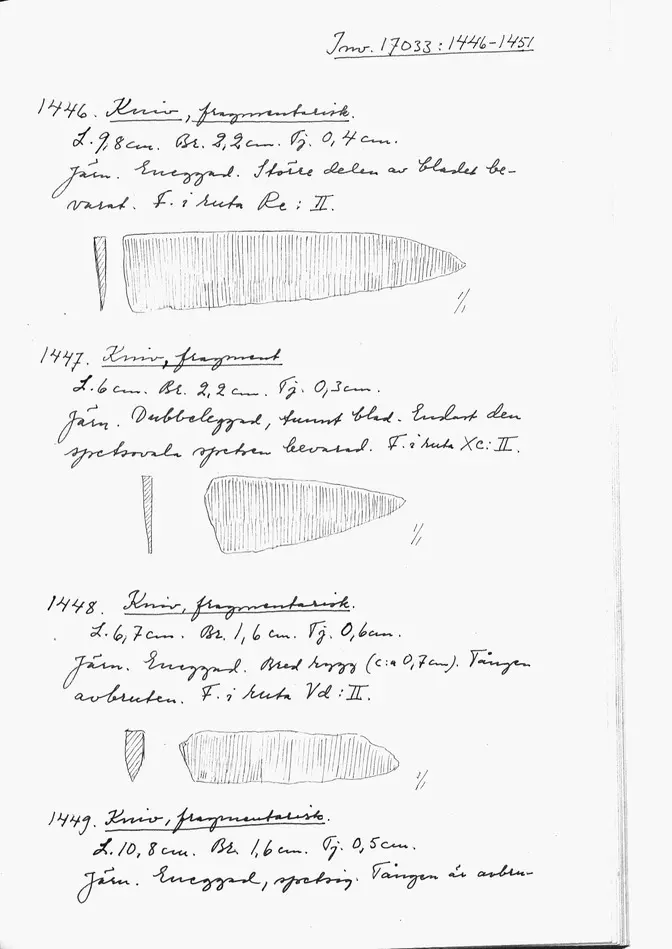 Inv. 17033:1446-1451
1446. Kniv, fragmentarisk.
L. 9,8cm. Br. 2,2cm. Tj. 0,4cm.
Järn. Eneggad. Större delen av bladet be-
varat. F. i ruta Re: II.
1/1
1447. Kniv, fragment
L. 6cm. Br. 2,2cm. Tj. 0,3cm.
Järn. Dubbeleggad, tunnt blad. Endast den
spetsovala spetsen bevarad. F. i ruta Xc: II.
1/1
1448. Kniv, fragmentarisk.
L. 6,7cm. Br. 1,6cm. Tj. 0,6cm.
Järn. Eneggad. Bred rygg (c:a 0,7cm). Tången
avbruten. F. i ruta Vd: II.
1/1
1449. Kniv, fragmentarisk.
L. 10,8cm. Br. 1,6cm. Tj. 0,5cm.
Järn. Eneggad, spetsig. Tången är avbru-